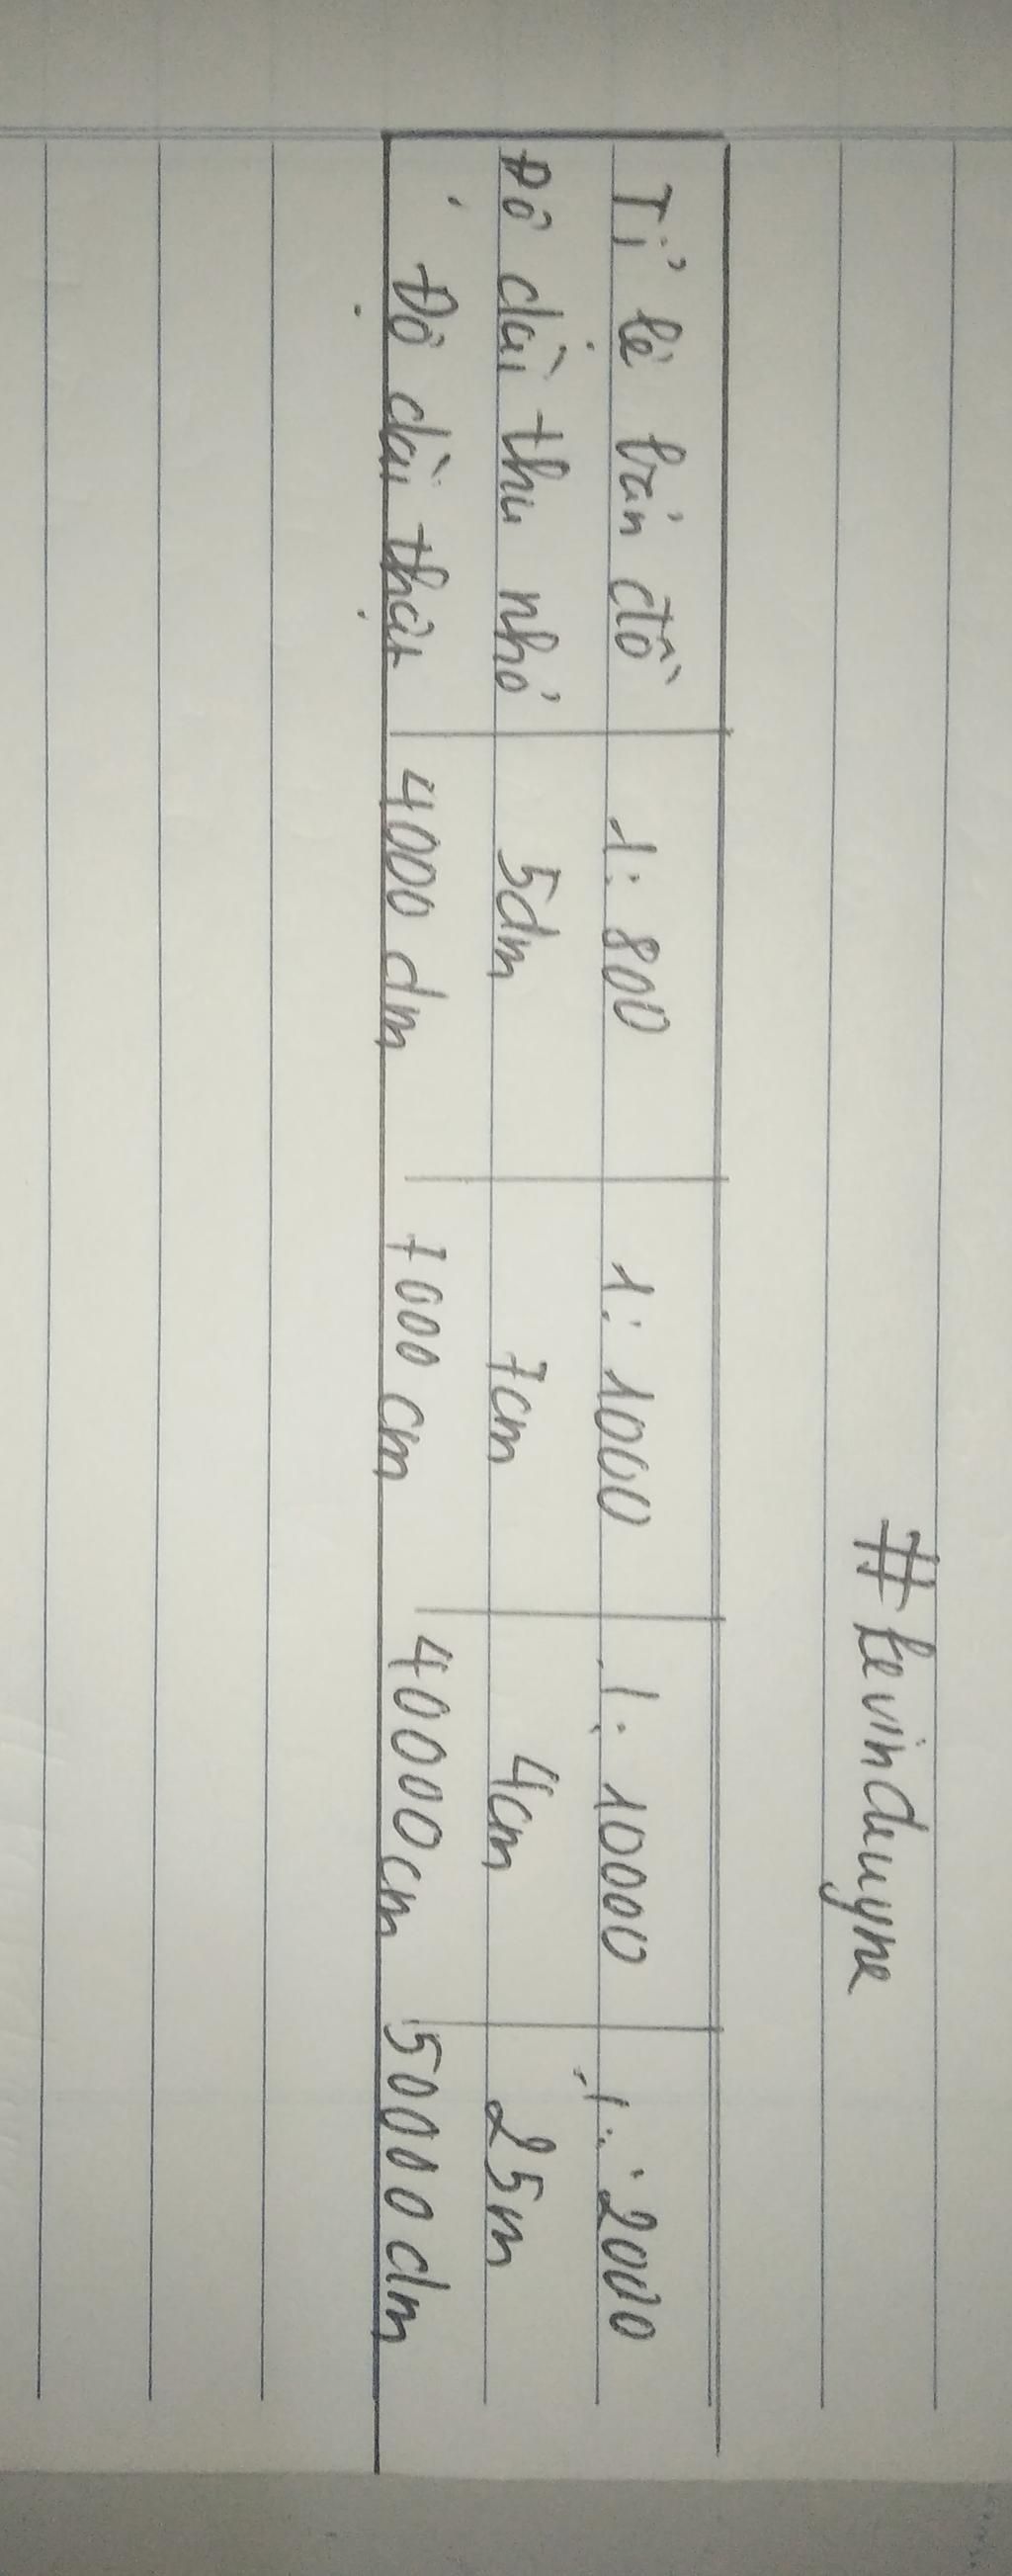 #kevinduyne
Tỉ lệ bản đồ 1:800 1:1000 1:10000 1:2000
Độ dài thu nhỏ 5dm 7cm 4cm 25m
Độ dài thật 4000 dm 7000 cm 40000cm 50000dm